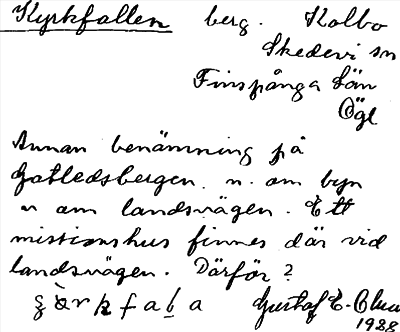 Kyrkfallen berg. Kolbo
Skedevi sn
Finspånga län
Ögl
Annan benämning på
Gatledsbergen. n. om byn
n om landsvägen. Ett
missionshus finnes där vid
landsvägen. Därför?
Gustaf E.
1928